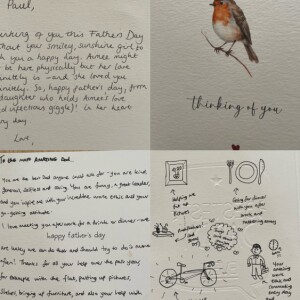 Paul,
nking of you this Fathers Day
thout you smiley, sunshine girl to
sh you a happy day. Aimee might
t be here physically but her love
finitely is - and she loved you
finitely. So, happy father's day, from
daughter who holds Aimee's love
d infectious giggle)! in her heart
ry day
Love,
thinking of you
To the most Awesome Dad.
You are the best anyone could ask for - you are kind,
generous, selfless and caring. You are funny, a great leader,
and you inspire me with your incredible work ethic and your
go-getting attitude.
I love meeting you afterwork for a drinks or dinner - we
happy father's day
are lucky we can do that and should try to do it more
often! Thanks for all your help over the past year,
for example with the flat, putting up pictures,
shelves, bringing up furniture, and also your help with
Helping me
put up
pictures
Going for dinner
with you after
work and
pottering away
Your
amazing
work
ethic and
commuting
every day